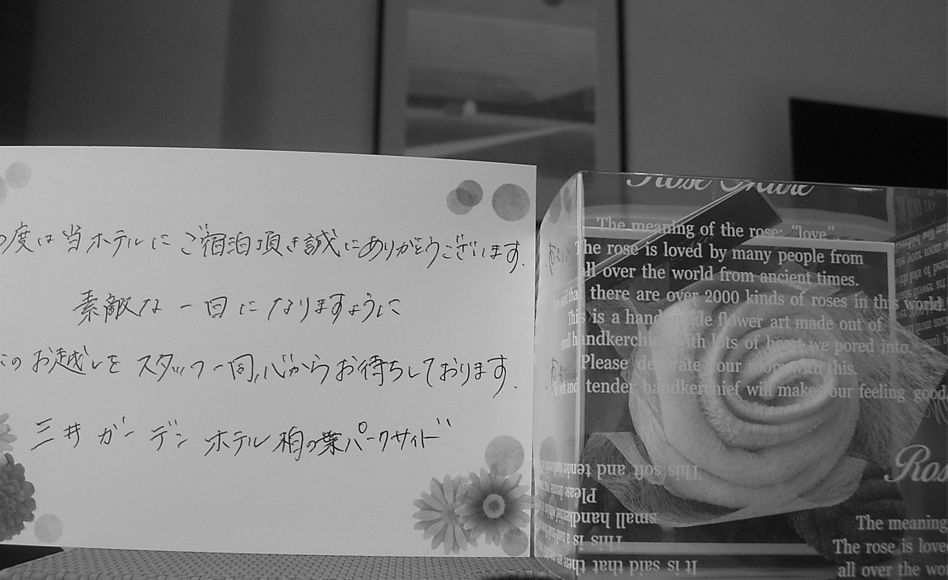 度は当ホテルにご宿泊頂き誠にありがとうございます.
素敵な一日になりますように
のお越しをスタッフ一同,心からお待ちしております.
三井ガーデンホテル柏の葉パークサイド
Rose
The meaning of the rose: “love”
The rose is loved by many people from
all over the world from ancient times.
there are over 2000 kinds of roses in this world
This is a handmade flower art made out of
handkerchief with lots of heart we pored into.
Please decorate your room with this.
and tender handkerchief will make your feeling good
This soft and tender
Please
small hand
This is a
It is said that there
Ros
The meaning
The rose is love
all over the wo